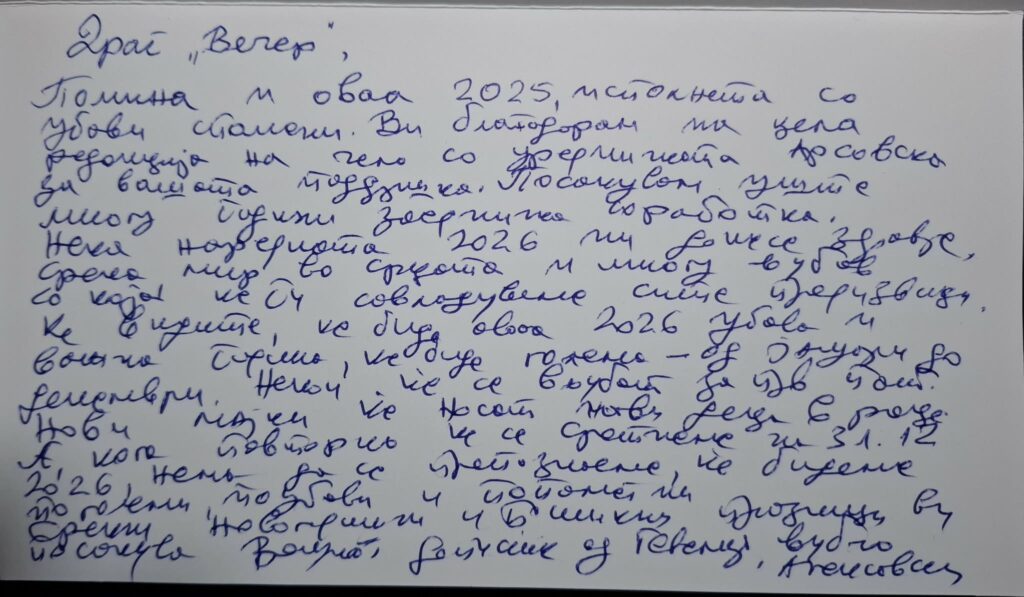 Драг „Вечер“,
Помина и оваа 2025, исполнета со
убови спомени. Ви благодарам на цела
редакција на чело со уредничката Арсовска
за вашата поддршка. Посакувам уште
многу години заедничка соработка.
Нека наредната 2026 ни донесе здравје,
среќа мир во срцата и многу љубов
со која ќе ги совладуваме сите предизвици.
Ќе видите, ќе биде оваа 2026 убава и
важна година, ќе биде голема – од јануари до
декември. Некои ќе се вљубат за прв пат.
Нови мајки ќе носат нови деца в раце.
А, кога повторно ќе се сретнеме на 31.12
2026, нема да се препознаеме, ќе бидеме
поголеми, поубави и попаметни
Среќни Новогодишни и Божиќни празници ви
посакува Вашиот дописник од Гевгелија,